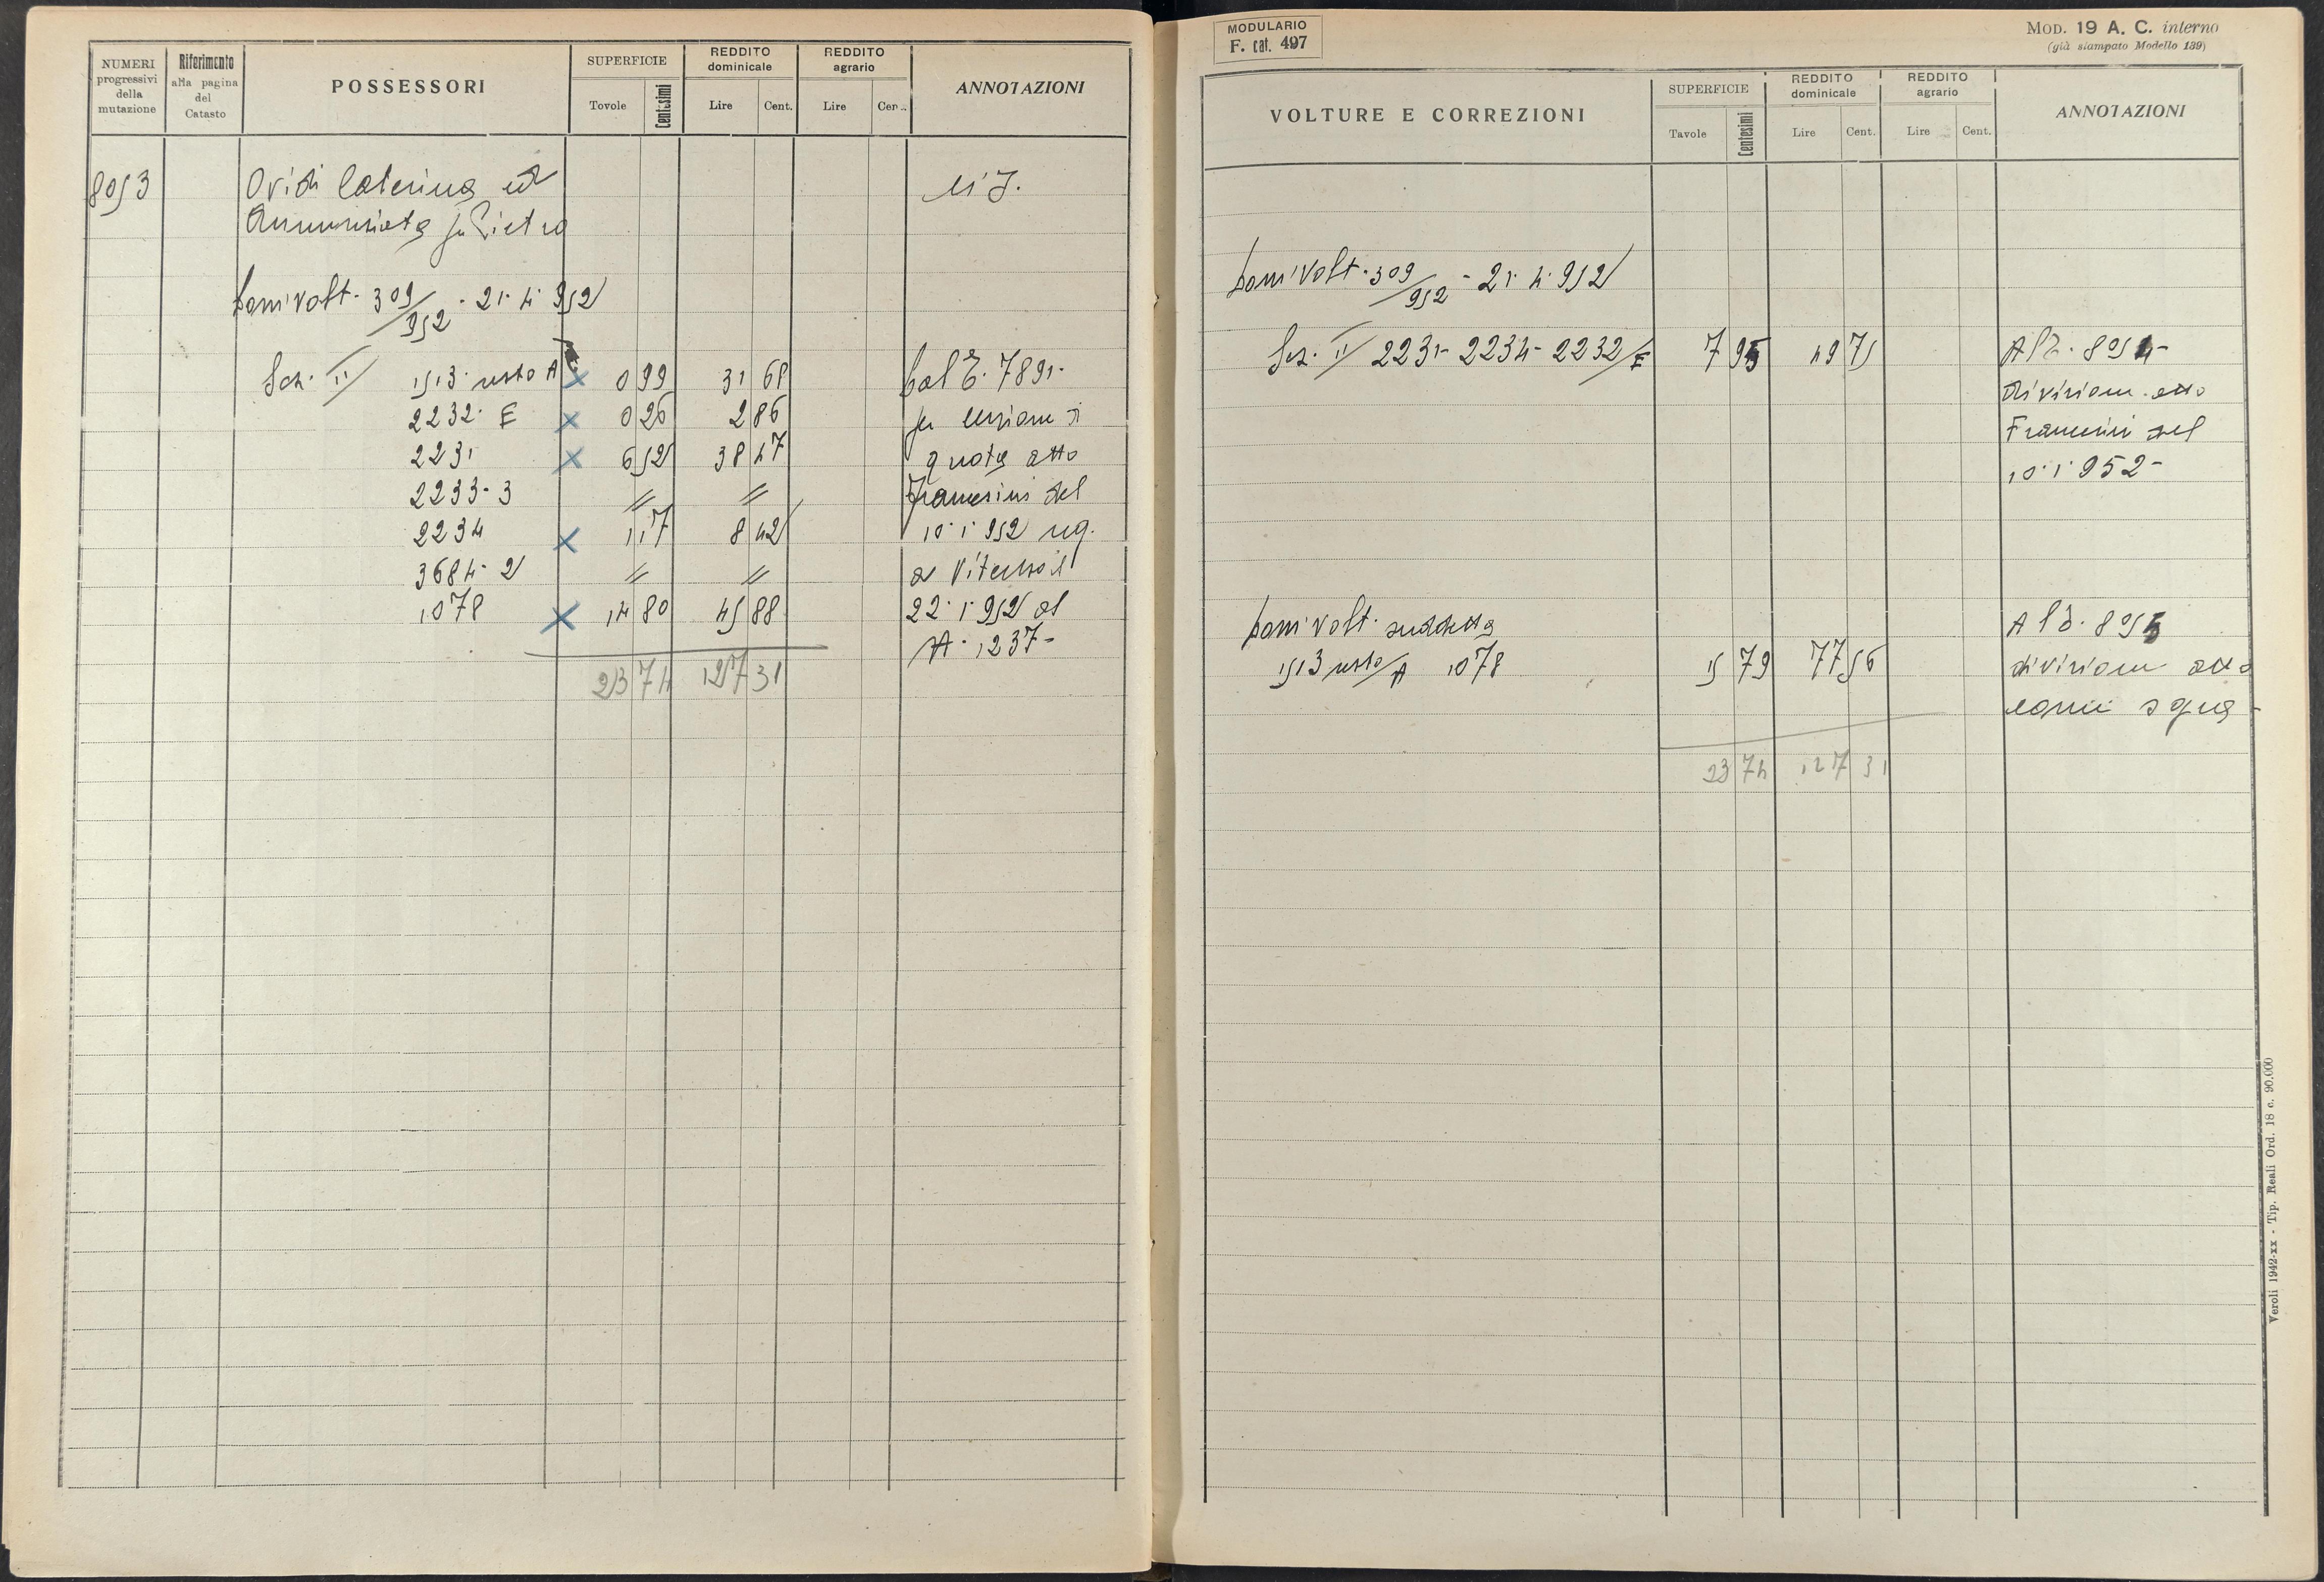 NUMERI progressivi della mutazione
Riferimento alla pagina del Catasto
POSSESSORI
SUPERFICIE
Tavole
Centesimi
REDDITO dominicale
Lire
Cent.
REDDITO agrario
Lire
Cent.
ANNOTAZIONI
8053
Ovidi Caterina ed
Annunziata fu Pietro
Dom Volt. 309/952 - 21.4.952
Sez. II 1513 resto A 0 99 31 68
2232 E 0 26 2 86
2231 6 52 38 47
2233-3 // //
2234 1 17 8 42
3684-2 // //
1078 14 80 45 88
23 74 127 31
Dal E. 7891-
per cessione di
quota atto
Francesini del
10.1.952 reg.
a Viterbo il
22.1.952 al
N. 1237-
MODULARIO
F. cat. 497
MOD. 19 A. C. interno
(già stampato Modello 139)
VOLTURE E CORREZIONI
SUPERFICIE
Tavole
Centesimi
REDDITO dominicale
Lire
Cent.
REDDITO agrario
Lire
Cent.
ANNOTAZIONI
Dom Volt. 309/952 - 21.4.952
Sez. II 2231-2234-2232/E 7 95 49 75
8054-
divisione atto
Francesini del
10.1.952-
Dom Volt. suddetta
1513 resto/A 1078 15 79 77 56
8055
divisione atto
come sopra -
23 74 127 31
Veroli 1942-XX - Tip. Reali Ord. 18 c. 90.000